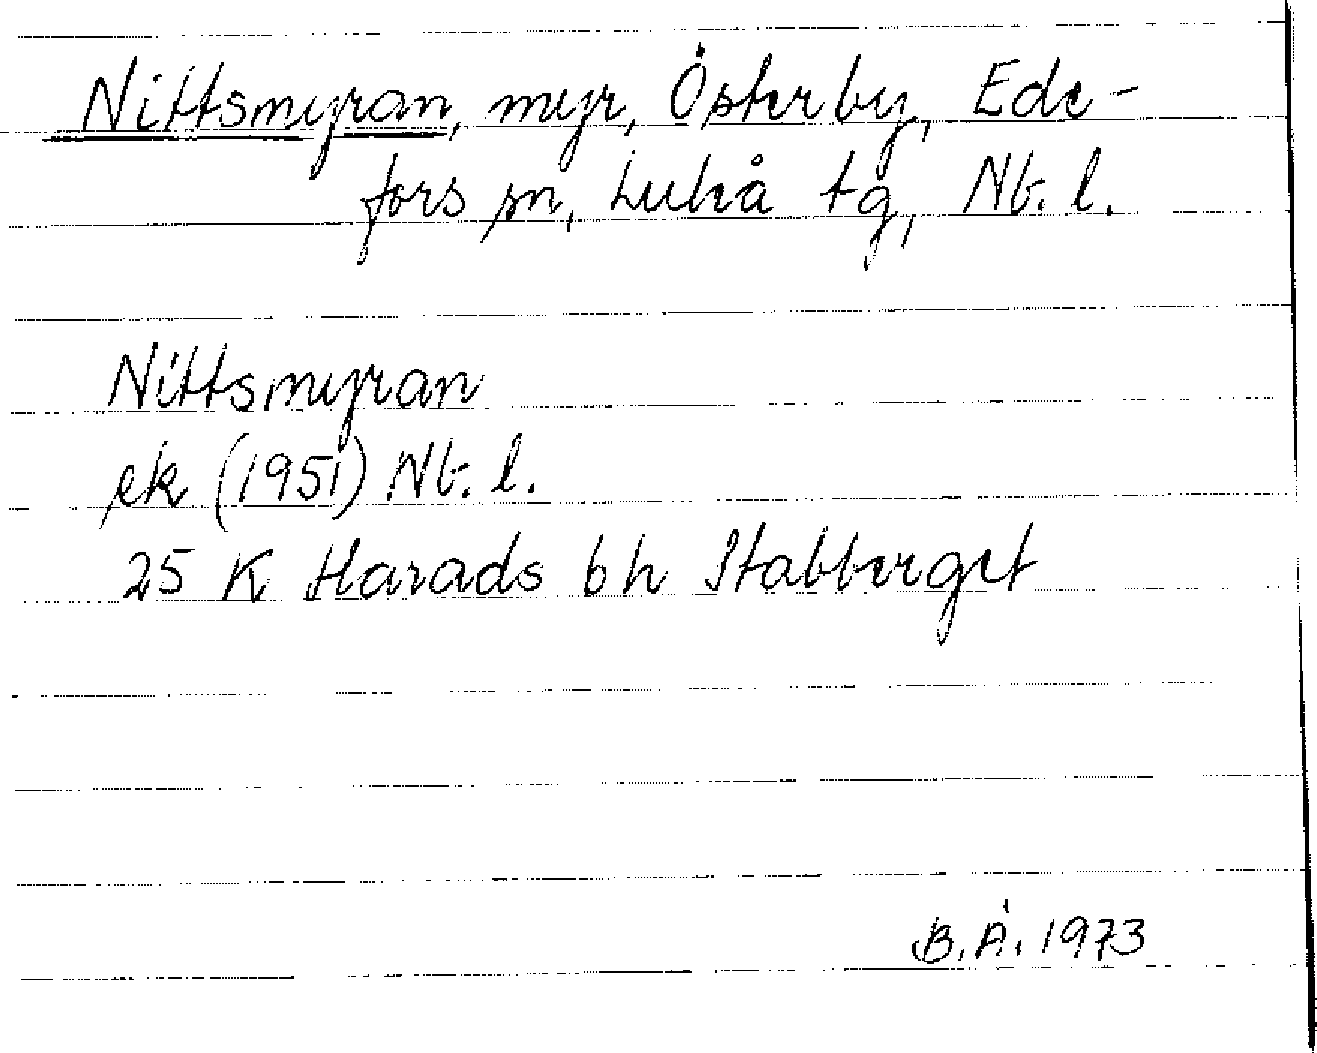 Nittsmyran, myr, Österby, Ede-
fors sn, Luleå tg, Nb. l.
Nittsmyran
ek (1951) Nb. l.
25 K Harads bh Stabberget
B.Å. 1973